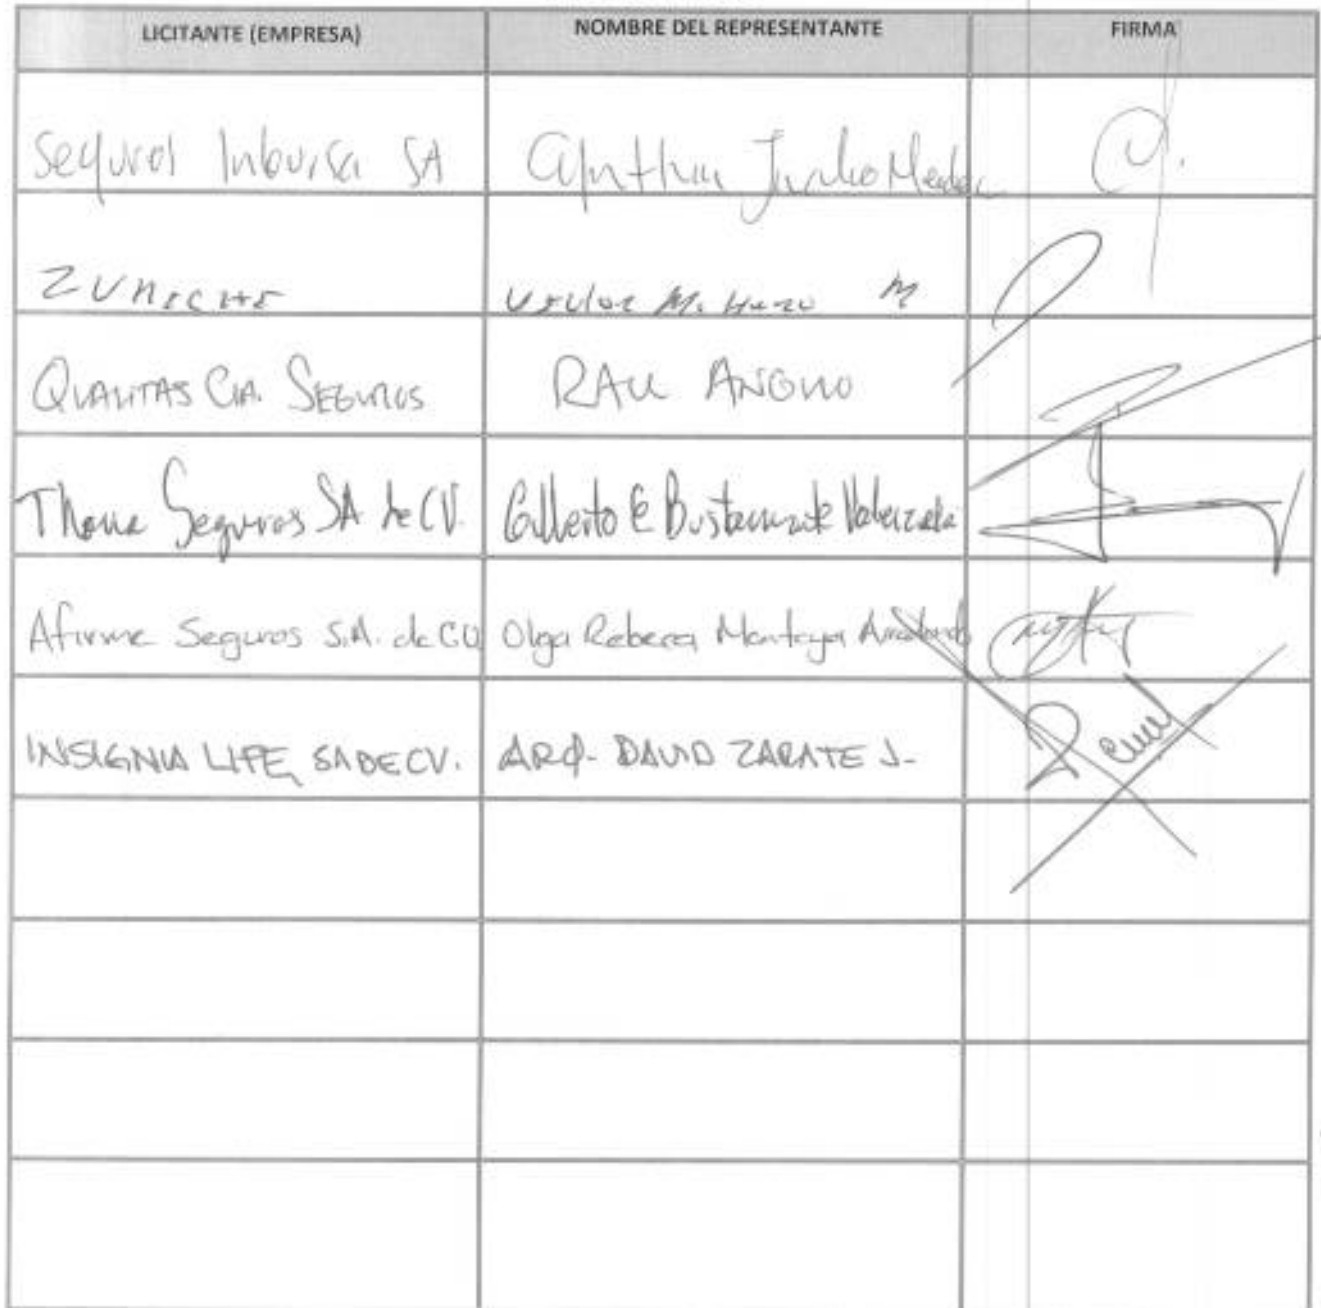 LICITANTE (EMPRESA) NOMBRE DEL REPRESENTANTE FIRMA
Seguros Inbursa SA Cynthia
ZURICH
QUALITAS CIA. SEGUROS RAUL ANGULO
Thona Seguros SA de CV. Gilberto E Bustamante Valenzuela
Afirme Seguros S.A. de CV Olga Rebeca Montoya Arredondo
INSIGNIA LIFE, SA DE CV. ARQ. DAVID ZARATE J.